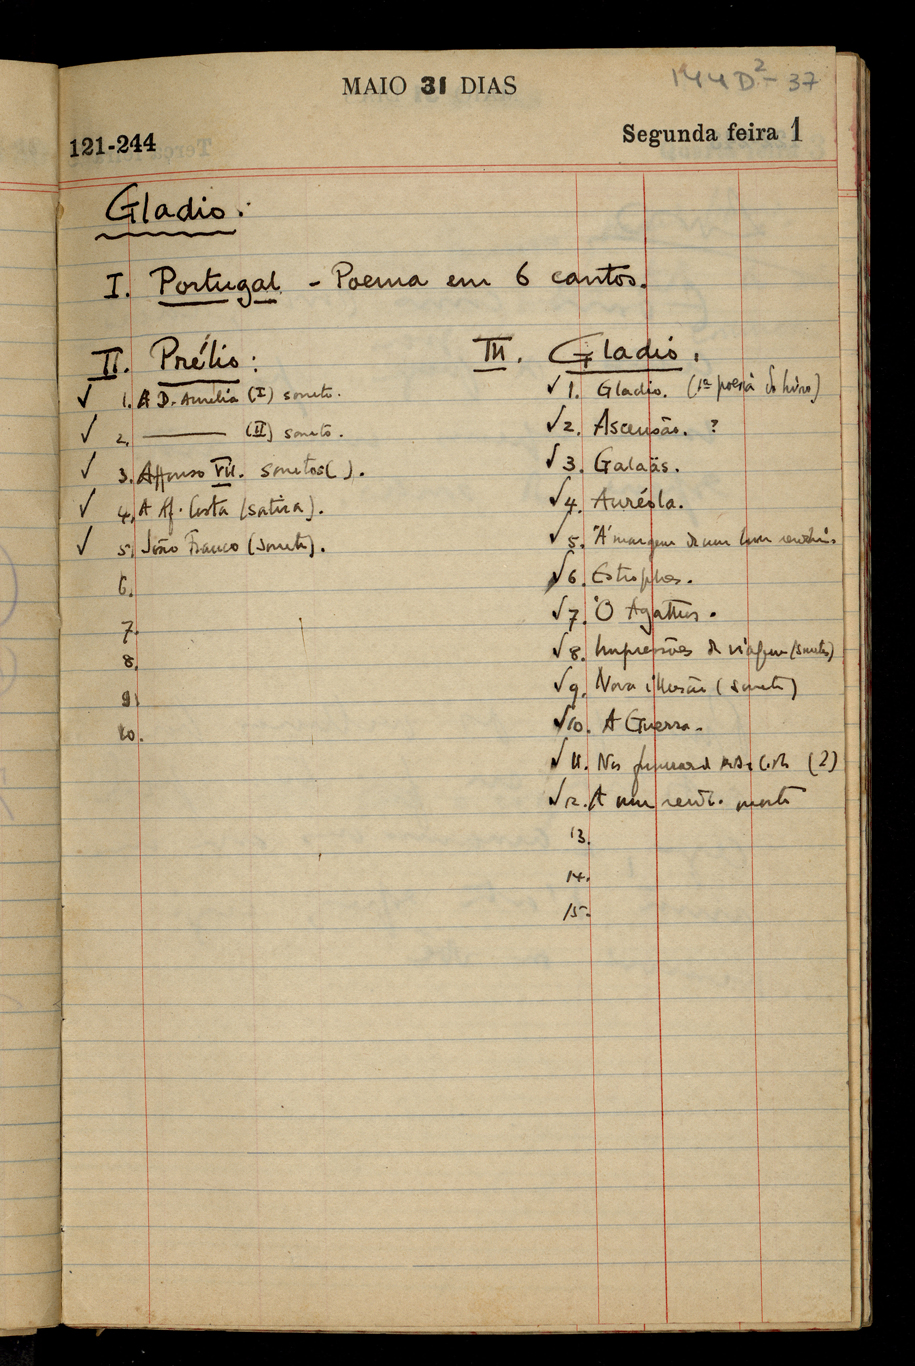 144D²-37
MAIO 31 DIAS
121-244
Segunda feira 1
Gladio:
I. Portugal - Poema em 6 cantos.
II. Prélio:
✓ 1. A D. Amelia (I) soneto.
✓ 2. ——— (II) soneto.
✓ 3. Affonso VII. sonetos( ).
✓ 4. A Af. Costa (satira).
✓ 5. João Franco (soneto).
6.
7.
8.
9.
10.
III. Gladio.
✓ 1. Gladio. (1ª poesia do livro)
✓ 2. Ascensão. ?
✓ 3. Galaãs.
✓ 4. Auréola.
✓ 5. Á margem de um
✓ 6. Estrophes.
✓ 7. O Agathos.
✓ 8. Impressões de viagem (sonetos)
✓ 9. Nova illusão (soneto)
✓ 10. A Guerra.
✓ 11. (2)
✓ 12. A um morto
13.
14.
15.